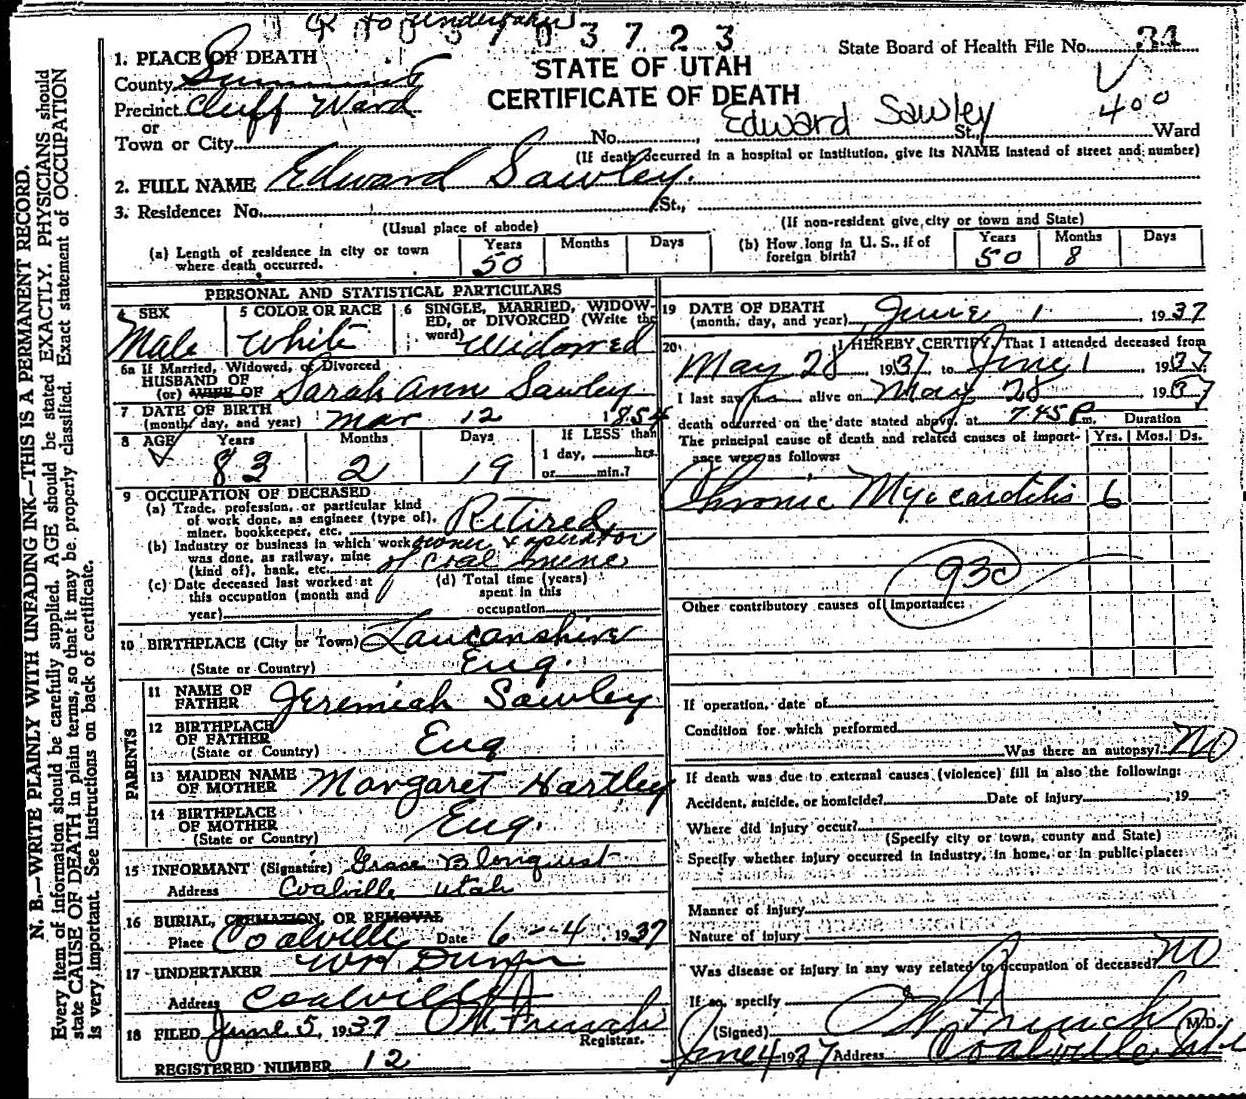 to Undertaker
3 7 0 3 7 2 3
State Board of Health File No. 34
STATE OF UTAH
CERTIFICATE OF DEATH
1. PLACE OF DEATH
County Summit
Precinct Cluff Ward
or
Town or City No. Edward Sawley St., 400 Ward
(If death occurred in a hospital or institution, give its NAME instead of street and number)
2. FULL NAME Edward Sawley.
3. Residence: No. St.,
(Usual place of abode) (If non-resident give city or town and State)
(a) Length of residence in city or town where death occurred. Years 50 Months Days
(b) How long in U. S., if of foreign birth? Years 50 Months 8 Days
PERSONAL AND STATISTICAL PARTICULARS
4 SEX Male
5 COLOR OR RACE White
6 SINGLE, MARRIED, WIDOWED, or DIVORCED (Write the word) Widowed
6a If Married, Widowed, or Divorced
HUSBAND OF
(or) WIFE OF Sarah Ann Sawley
7 DATE OF BIRTH
(month, day, and year) Mar 12 1854
8 AGE Years 83 Months 2 Days 19 If LESS than 1 day, hrs. or min.?
9 OCCUPATION OF DECEASED
(a) Trade, profession, or particular kind of work done, as engineer (type of), miner, bookkeeper, etc. Retired
(b) Industry or business in which work was done, as railway, mine (kind of), bank, etc. owner & operator of coal mine
(c) Date deceased last worked at this occupation (month and year)
(d) Total time (years) spent in this occupation
10 BIRTHPLACE (City or Town) Lancanshire
(State or Country) Eng.
PARENTS
11 NAME OF FATHER Jeremiah Sawley
12 BIRTHPLACE OF FATHER
(State or Country) Eng
13 MAIDEN NAME OF MOTHER Margaret Hartley
14 BIRTHPLACE OF MOTHER
(State or Country) Eng.
15 INFORMANT (Signature) Grace Blonquist
Address Coalville Utah
16 BURIAL, CREMATION, OR REMOVAL
Place Coalville Date 6-4, 1937
17 UNDERTAKER
Address Coalville
18 FILED June 5, 1937
Registrar.
REGISTERED NUMBER 12
19 DATE OF DEATH
(month, day, and year) June 1, 1937
20 I HEREBY CERTIFY, That I attended deceased from
May 28 1937 to June 1 1937
I last saw alive on May 28 1937
death occurred on the date stated above, at 7.45 P m.
Duration
The principal cause of death and related causes of importance were as follows: Yrs. Mos. Ds.
Chronic Myocarditis 6
93c
Other contributory causes of importance:
If operation, date of
Condition for which performed
Was there an autopsy? No
If death was due to external causes (violence) fill in also the following:
Accident, suicide, or homicide? Date of injury , 19
Where did injury occur?
(Specify city or town, county and State)
Specify whether injury occurred in industry, in home, or in public place:
Manner of injury
Nature of injury
Was disease or injury in any way related to occupation of deceased? No
If so, specify
(Signed) M.D.
June 4 1937 Address Coalville Utah
N. B.—WRITE PLAINLY WITH UNFADING INK—THIS IS A PERMANENT RECORD.
Every item of information should be carefully supplied. AGE should be stated EXACTLY. PHYSICIANS should
state CAUSE OF DEATH in plain terms, so that it may be properly classified. Exact statement of OCCUPATION
is very important. See instructions on back of certificate.